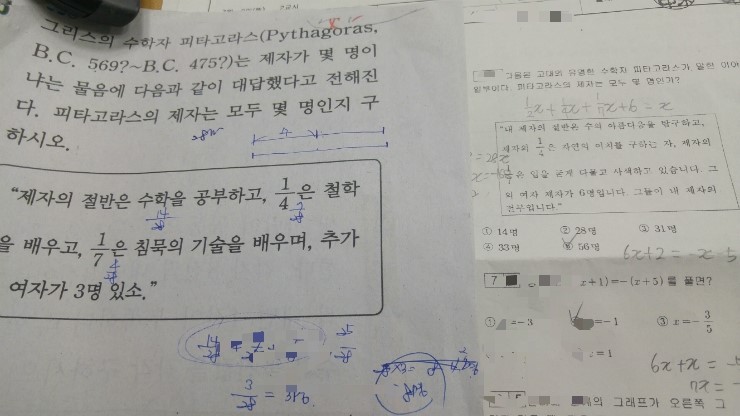 그리스의 수학자 피타고라스(Pythagoras,
B.C. 569?~B.C. 475?)는 제자가 몇 명이
냐는 물음에 다음과 같이 대답했다고 전해진
다. 피타고라스의 제자는 모두 몇 명인지 구
하시오.
4
"제자의 절반은 수학을 공부하고, 1/4은 철학
14/28
7/28
을 배우고, 1/7은 침묵의 기술을 배우며, 추가
4/28
여자가 3명 있소."
25/28
3/28 = 3명
그들은 고대의 유명한 수학자 피타고라스가 말한
일부이다. 피타고라스의 제자는 모두 몇 명인가?
1/2x + 1/4x + 1/7x + 6 = x
"내 제자의 절반은 수의 아름다움을 탐구하고,
제자의 1/4은 자연의 이치를 구하는 자, 제자의
1/7은 입을 굳게 다물고 사색하고 있습니다. 그
외 여자 제자가 6명입니다. 그들이 내 제자의
전부입니다."
① 14명 ② 28명 ③ 31명
④ 33명 ⑤ 56명
6x+2 = -x-5
7 x+1)=-(x+5) 를 풀면?
① =-3 =-1 ③ x=-3/5
=1
6x+x = -
7x = -
의 그래프가 오른쪽 그